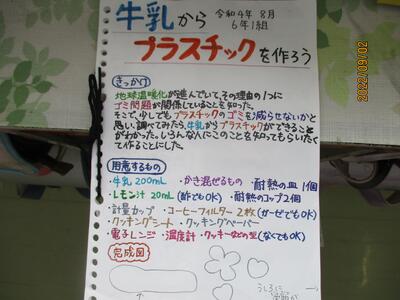 牛乳から
令和4年8月
6年1組
プラスチックを作ろう
きっかけ
地球温暖化が進んでいて、その理由の1つに
ゴミ問題が関係していることを知った。
そこで、少しでもプラスチックのゴミを減らせないかと
思い、調べてみたら、牛乳からプラスチックができること
がわかった。いろんな人にこのことを知ってもらいたく
て作ることにした。
用意するもの
・牛乳200mL ・かき混ぜるもの ・耐熱の皿 1個
・レモン汁 20mL (酢でもOK) ・耐熱のコップ2個
・計量カップ ・コーヒーフィルター2枚(ガーゼでもOK)
・クッキングシート ・クッキングペーパー
・電子レンジ ・温度計 ・クッキーなどの型(なくてもOK)
完成図
うしろに
2022/09/02